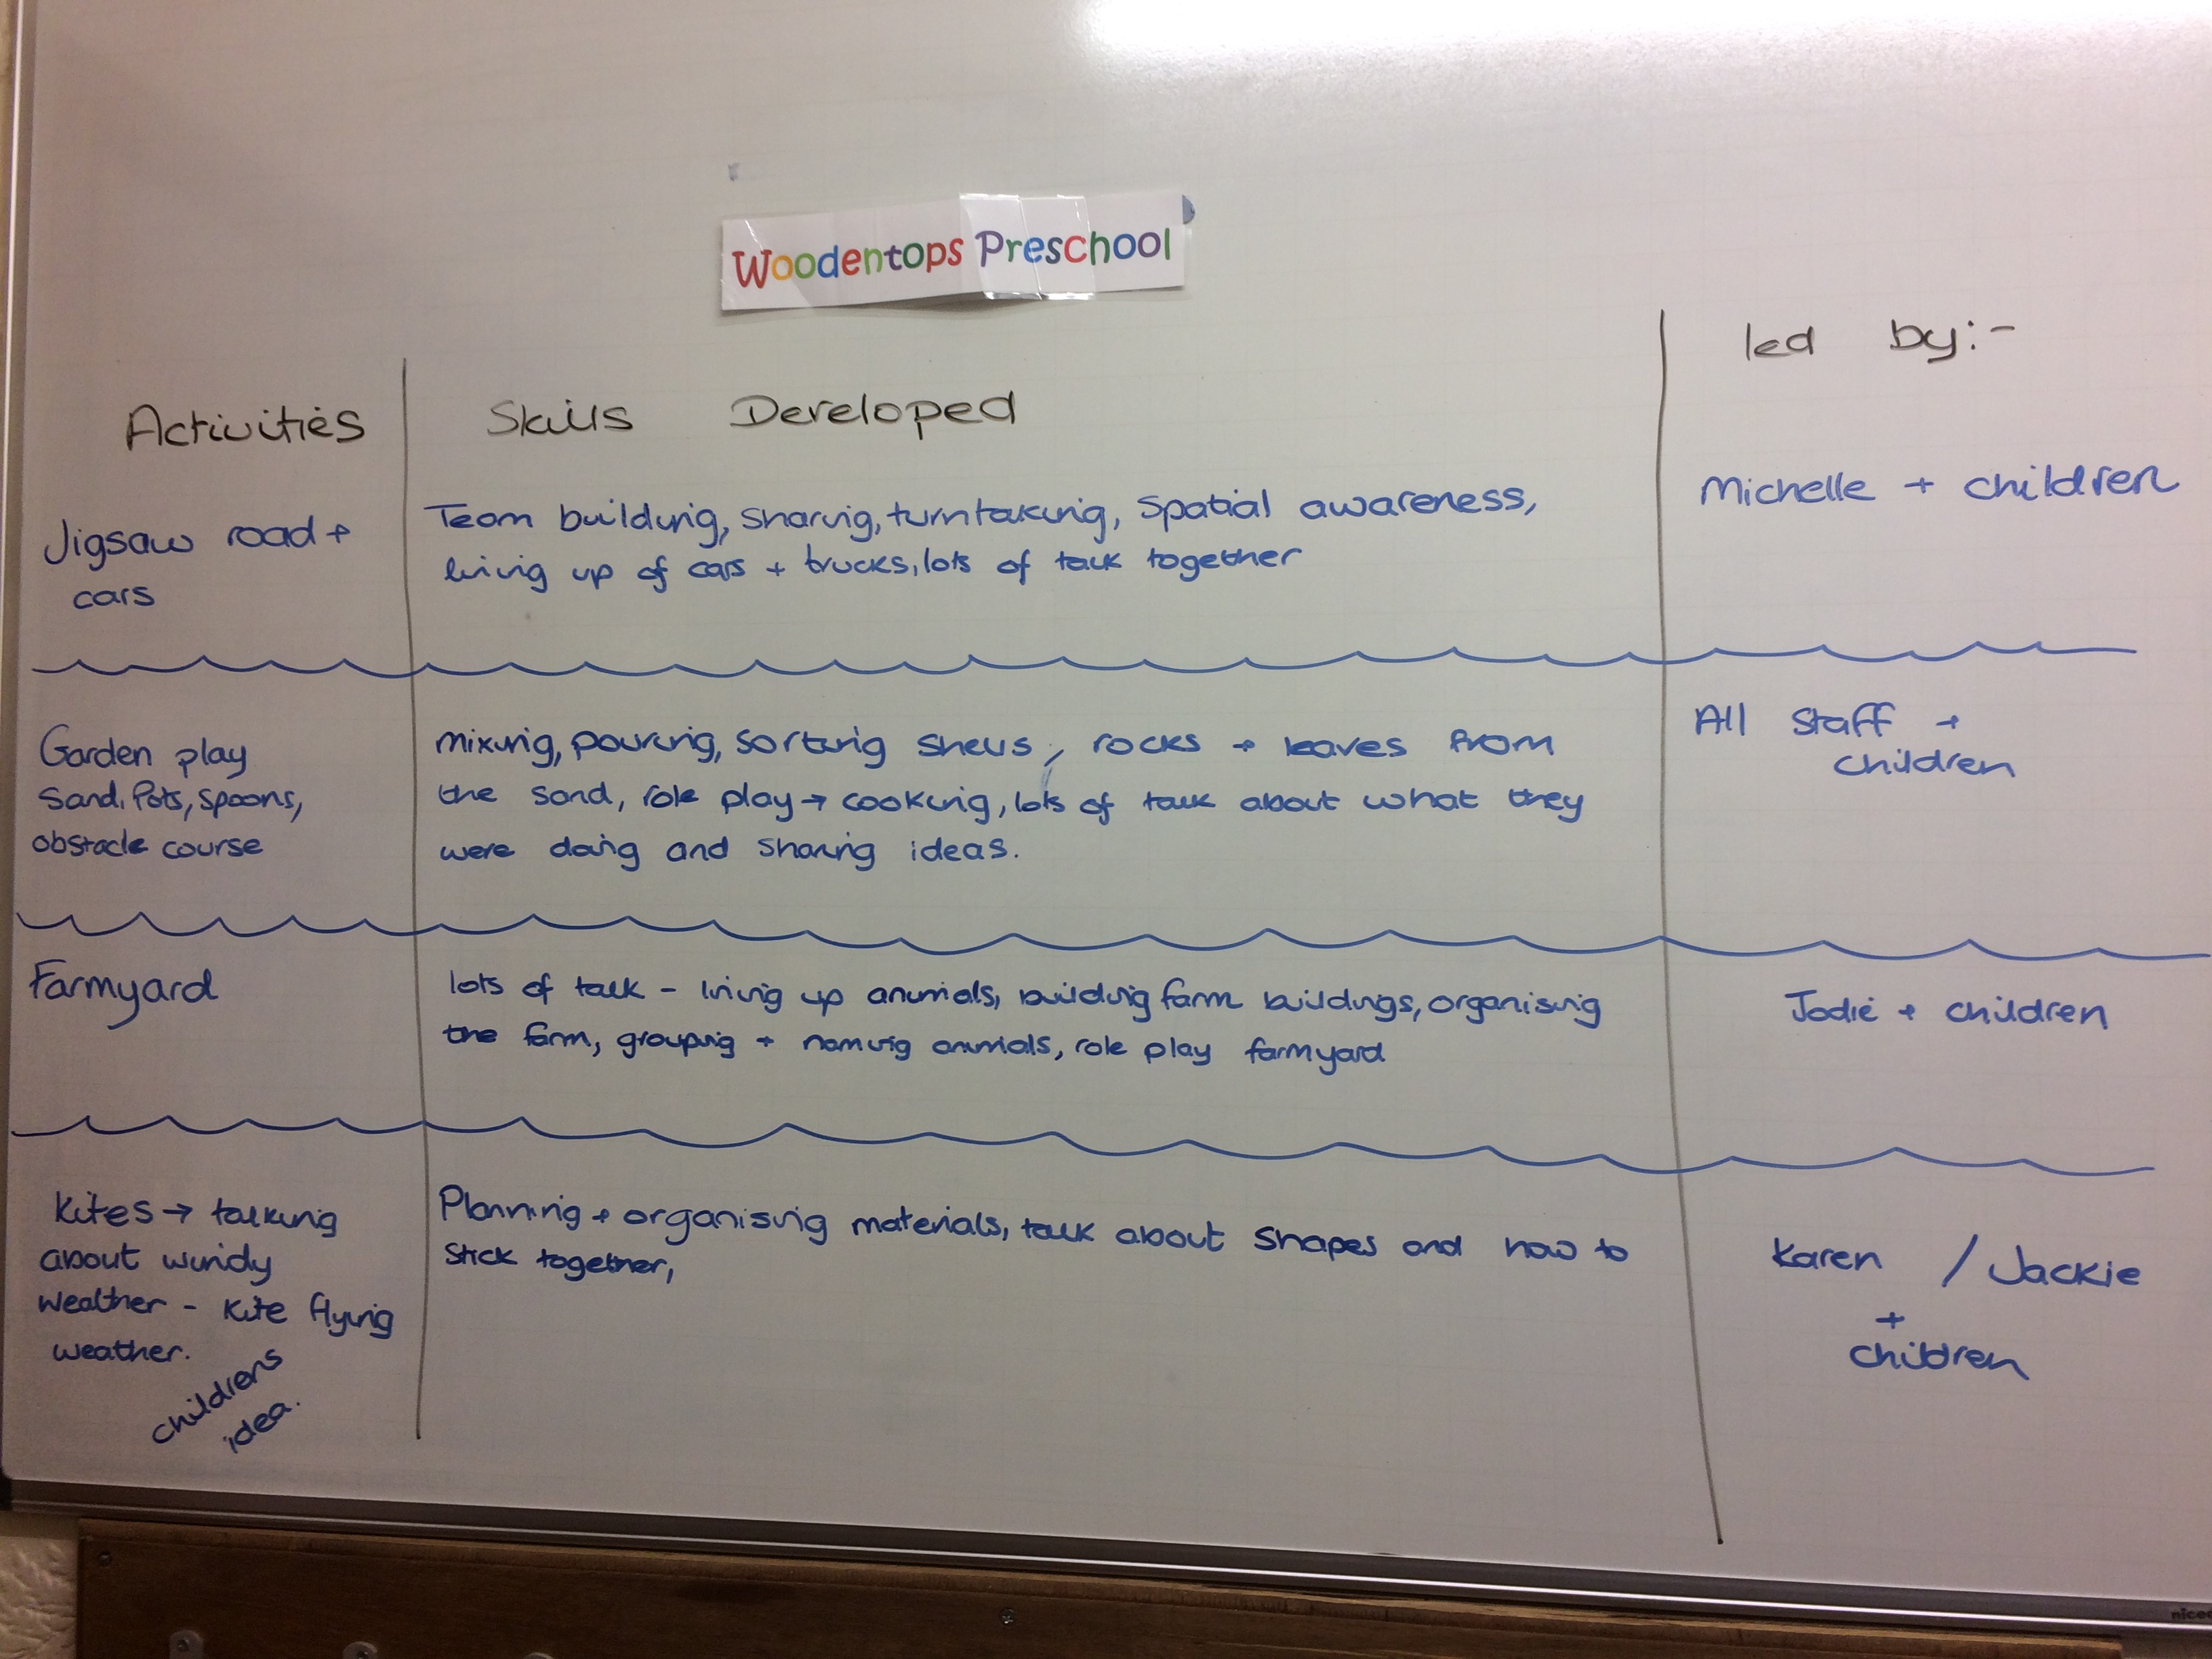 Woodentops Preschool
Activities
Skills Developed
led by:-
Jigsaw road +
cars
Team building, sharing, turntaking, spatial awareness,
lining up of cars + trucks, lots of talk together
Michelle + children
Garden play
Sand, Pots, spoons,
obstacle course
mixing, pouring, sorting shells, rocks + leaves from
the sand, role play → cooking, lots of talk about what they
were doing and sharing ideas.
All staff +
children
Farmyard
lots of talk - lining up animals, building farm buildings, organising
the farm, grouping + naming animals, role play farmyard
Jodie + children
Kites → talking
about windy
weather - kite flying
weather.
childrens
idea.
Planning + organising materials, talk about shapes and how to
stick together,
Karen / Jackie
+
children